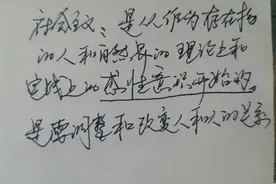 社会主义：是从人作为存在物
的人和自然界的理论上和
实践上的感性意识开始的。
是要调整和改变人和人的关系